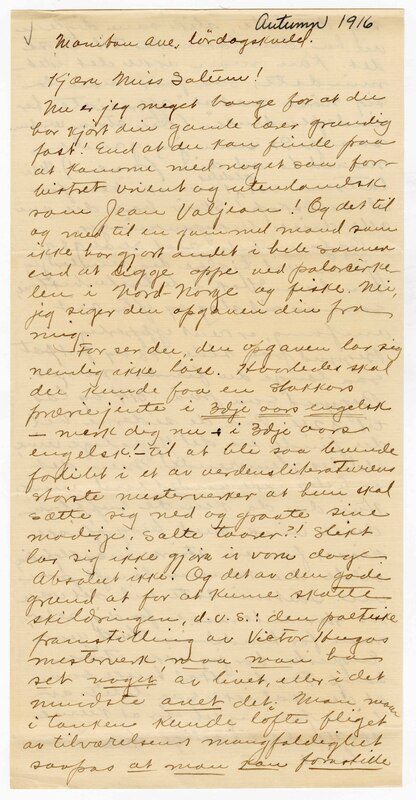 Autumn 1916
Manitou Ave, lördagskveld.
Kjære Miss Satum!
Nu er jeg meget bange for at du
har kjört din gamle lærer grundig
fast! End at du kan finde paa
at komme med noget saa for-
bistret vrient og utenlandsk
som Jean Valjean! Og det til
og med til en gammel mand som
ikke har gjort andet i hele sommer
end at ligge oppe ved polarcirke-
len i Nord-Norge og fiske. Nei,
jeg siger den opgaven din fra
mig.
For ser du, den opgaven lar sig
nemlig ikke löse. Hvorledes skal
du kunde faa en stakkars
præriejente i 3dje aars engelsk
– merk dig nu – i 3dje aars
engelsk! – til at bli saa levende
fordibt i et av verdensliteraturens
störste mesterverker at hun skal
sætte sig ned og graate sine
modige, salte taarer?! Slikt
lar sig ikke gjöre i vore dage
Absolut ikke! Og det av den gode
grund at for at kunne skatte
skildringen, d.v.s.: den poetiske
framstilling av Victor Hugos
mesterverk maa man ha
set noget av livet, eller i det
mindste anet det. Man maa
i tanken kunde löfte fliget
av tilværelsens mangfoldighet
saapas at man kan forestille